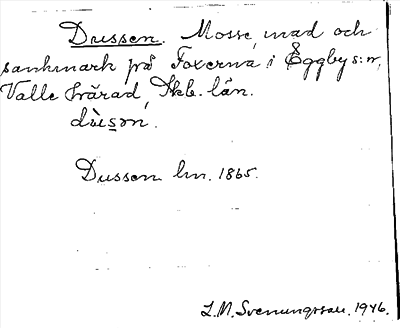 Dussen. Mosse, mad och
sankmark på Foxerna i Eggby s:n,
Valle härad, Skb. län.
Dussen lm. 1865.
L.M. Svenungsson. 1946.